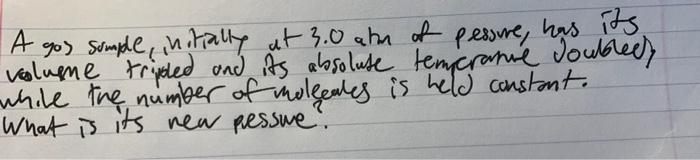 A gas sample, initially at 3.0 atm of pessure, has its
volume tripled and its absolute temprature doubled,
while the number of molecules is held constant.
What is its new pessure?